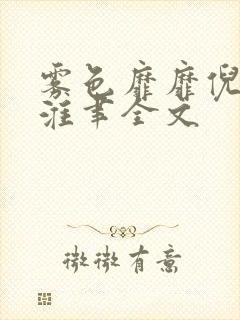 雾色靡靡倪
漄聿全文
微微有意